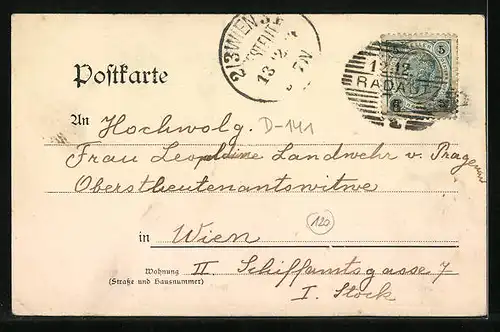 2/3 WIEN
13 12
5
12 12
RADAUTZ
Postkarte
D-141
An Hochwolg.
Frau Leopoldine Landwehr v. Pragenau
Oberstleutenantswitwe
120
in Wien
Wohnung II. Schiffamtsgasse 7
(Straße und Hausnummer)
I. Stock